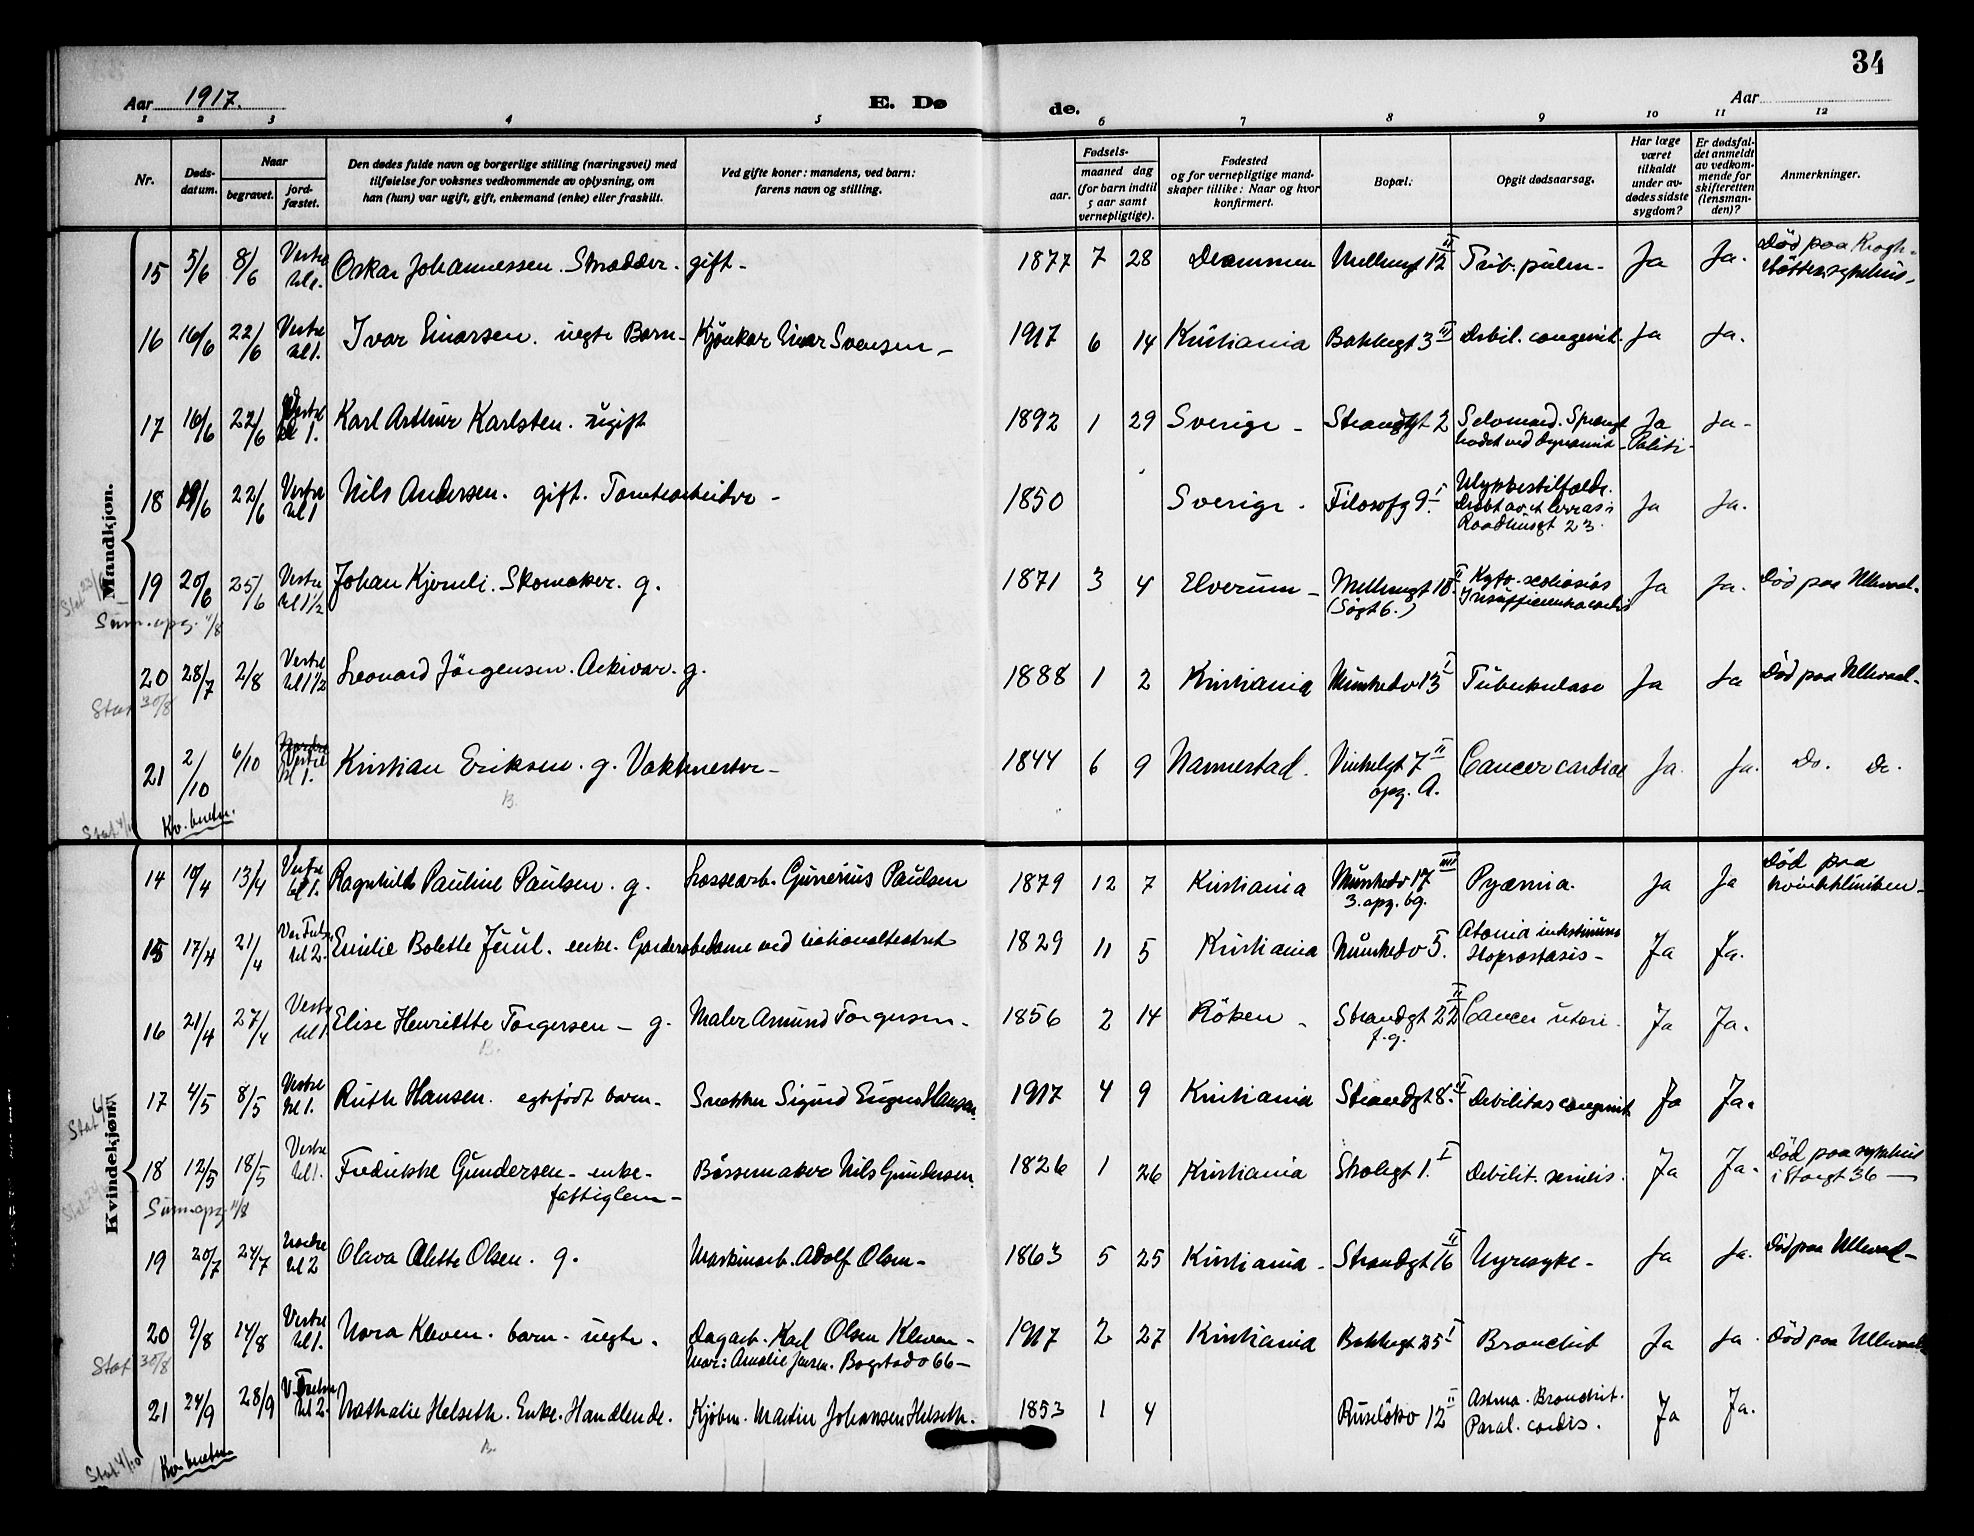 34
Aar 1917.
E. Dø
de.
Aar
1 2 3 4 5 6 7 8 9 10 11 12
Nr.
Døds-
datum.
Naar
begravet.
jord-
fæstet.
Den dødes fulde navn og borgerlige stilling (næringsvei) med
tilføielse for voksnes vedkommende av oplysning, om
han (hun) var ugift, gift, enkemand (enke) eller fraskilt.
Ved gifte koner: mandens, ved barn:
farens navn og stilling.
Fødsels-
aar.
maaned dag
(for barn indtil
5 aar samt
vernepligtige).
Fødested
og for vernepligtige mand-
skaper tillike: Naar og hvor
konfirmert.
Bopæl:
Opgit dødsaarsag.
Har læge
været
tilkaldt
under av-
dødes sidste
sygdom?
Er dødsfal-
det anmeldt
av vedkom-
mende for
skifteretten
(lensman-
den)?
Anmerkninger.
Mandkjøn.
15 5/6 8/6 Vestre kl 1. Oskar Johannessen. Skrædder. gift - 1877 7 28 Drammen Mellemgt 12 II Tub. pulm. Ja Ja. Død paa Krogh-
støttens sykehus -
16 16/6 22/6 Vestre kl 1. Ivar Einarsen. uegte Barn - Kjørekar Einar Svensen - 1917 6 14 Kristiania Bakkegt 3 II Debil. congenit. Ja Ja.
17 16/6 22/6 Vestre kl 1. Karl Arthur Karlsten. ugift 1892 1 29 Sverige - Strandgt 2 Selvmord. Sprængt
hodet ved dynamit - Ja
Politi - Ja -
18 19/6 22/6 Vestre kl 1 Nils Andersen. gift. Tomtearbeider - 1850 Sverige - Filosofg 9 I Ulykkestilfælde.
Dræbt av et læras i
Raadhusgt 23. Ja Ja.
19 20/6 25/6 Vestre kl 1½ Johan Kjernli. Skomaker. g. 1871 3 4 Elverum - Mellemgt 10 II
(Søgt 6.) Kyfo-scoliosis
Insufficientia cordis Ja Ja. Død paa Ullevaal.
Sum. opg. 11/8
20 28/7 2/8 Vestre kl 1½ Leonard Jörgensen. Arkivar. g. 1888 1 2 Kristiania Munkedv 13 I Tuberkulose Ja Ja Død paa Ullevaal.
Stat 30/8
21 2/10 6/10 Vestre kl 1. Kristian Eriksen. g. Vaktmester - 1844 6 9 Nannestad. Vinkelgt 7 II
opg. A. Cancer cardiae Ja. Ja. Do. Do.
B.
Stat 4/10
Kvindekjøn.
14 10/4 13/4 Vestre kl 1. Ragnhild Pauline Paulsen. g. Lossearb. Gunerius Paulsen 1879 12 7 Kristiania Munkedv 17 IIII
3. opg. bg. Pyæmia. Ja Ja Død paa
kvindeklinikken -
15 17/4 21/4 kl 2. Emilie Bolette Juul. enke. Garderobedame ved Nationalteatret 1829 11 5 Kristiania Munkedv 5. Atonia intestinum
Koprostasis - Ja Ja.
16 21/4 27/4 Vestre kl 1 Elise Henriette Torgersen - g. Maler Amund Torgersen - 1856 2 14 Röken - Strandgt 22 II
f.g. Cancer uteri. Ja Ja.
B.
17 4/5 8/5 Vestre kl 1. Ruth Hansen. egtefödt barn - Snekker Sigurd Eugen Hansen. 1917 4 9 Kristiania Strandgt 8. II Debilitas congenit. Ja Ja.
18 12/5 18/5 Vestre kl 1. Fredrikke Gundersen - enke -
fattiglem - Børsemaker Nils Gundersen. 1826 1 26 Kristiania Skolegt 1. I Debilit. senilis. Ja Ja. Død paa sykehus
i Storgt 36 -
Sum. opg. 11/8
19 20/7 24/7 Nordre kl 2 Olava Alette Olsen. g. Maskinarb. Adolf Olsen - 1863 5 25 Kristiania - Strandgt 16 II Nyresyke - Ja Ja. Død paa Ullevaal -
20 9/8 14/8 Vestre kl 1. Nora Kleven. barn. uegte. Dagarb. Karl Olsen Kleven -
Mor: Amalie Jensen. Bogstadv 66 - 1917 2 27 Kristiania Bakkegt 25 I Bronchit Ja Ja. Død paa Ullevaal.
Stat 30/8
21 24/9 28/9 kl 2. Nathalie Helseth. Enke. Handlende. Kjöbm. Martin Johansen Helseth. 1853 1 4 Ruselökv 12 II Astma. Bronchit.
Paral. cordis. Ja Ja.
B.
Stat 4/10